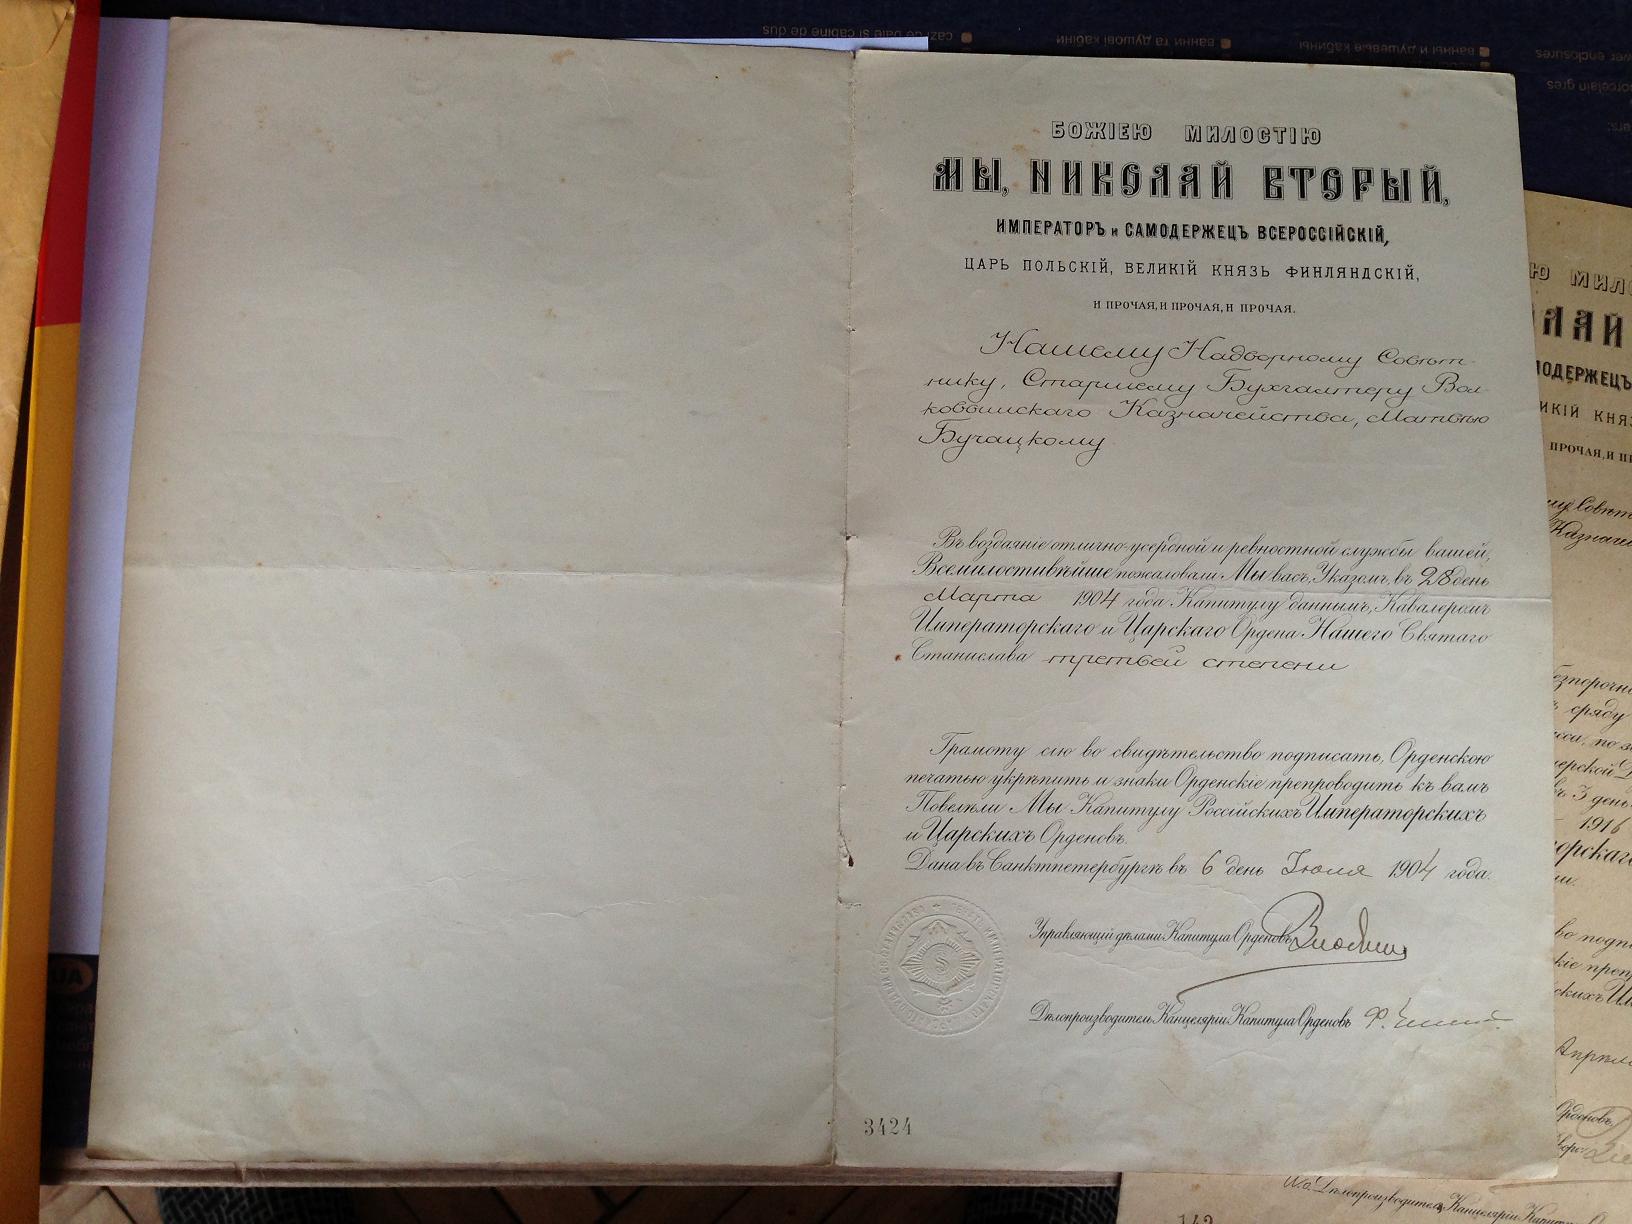 БОЖІЕЮ МИЛОСТІЮ
МЫ, НИКОЛАЙ ВТОРЫЙ,
ИМПЕРАТОРЪ и САМОДЕРЖЕЦЪ ВСЕРОССІЙСКІЙ,
ЦАРЬ ПОЛЬСКІЙ, ВЕЛИКІЙ КНЯЗЬ ФИНЛЯНДСКІЙ,
И ПРОЧАЯ, И ПРОЧАЯ, И ПРОЧАЯ.
Нашему Надворному Совѣт-
нику, Старшему Бухгалтеру Вол-
ковышскаго Казначейства, Матвѣю
Бучацкому
Въ воздаяніе отлично-усердной и ревностной службы вашей,
Всемилостивѣйше пожаловали Мы васъ, Указомъ, въ 28 день
Марта 1904 года Капитулу даннымъ, Кавалеромъ
Императорскаго и Царскаго Ордена Нашего Святаго
Станислава третьей степени
Грамоту сію во свидѣтельство подписать, Орденскою
печатью укрѣпить и знаки Орденскіе препроводить къ вамъ
Повелѣли Мы Капитулу Россійскихъ Императорскихъ
и Царскихъ Орденовъ.
Дана въ Санктпетербургѣ въ 6 день Іюля 1904 года.
Управляющій дѣлами Капитула Орденовъ
Дѣлопроизводитель Канцеляріи Капитула Орденовъ
3424
ванни та душові кабіни
ванны и душевые кабины
cazi de baie si cabine de dus
porcelain gres
Ю МИЛО
ЛАЙ
МОДЕРЖЕЦЪ
ИКІЙ КНЯЗ
ПРОЧАЯ, И ПР
му Совѣт
Казначе
безпорочн
сряду
3 день
1916
орскаго
во подп
Апрѣл
Орденовъ
И.о. Дѣлопроизводителя Канцеляріи Капитула
142